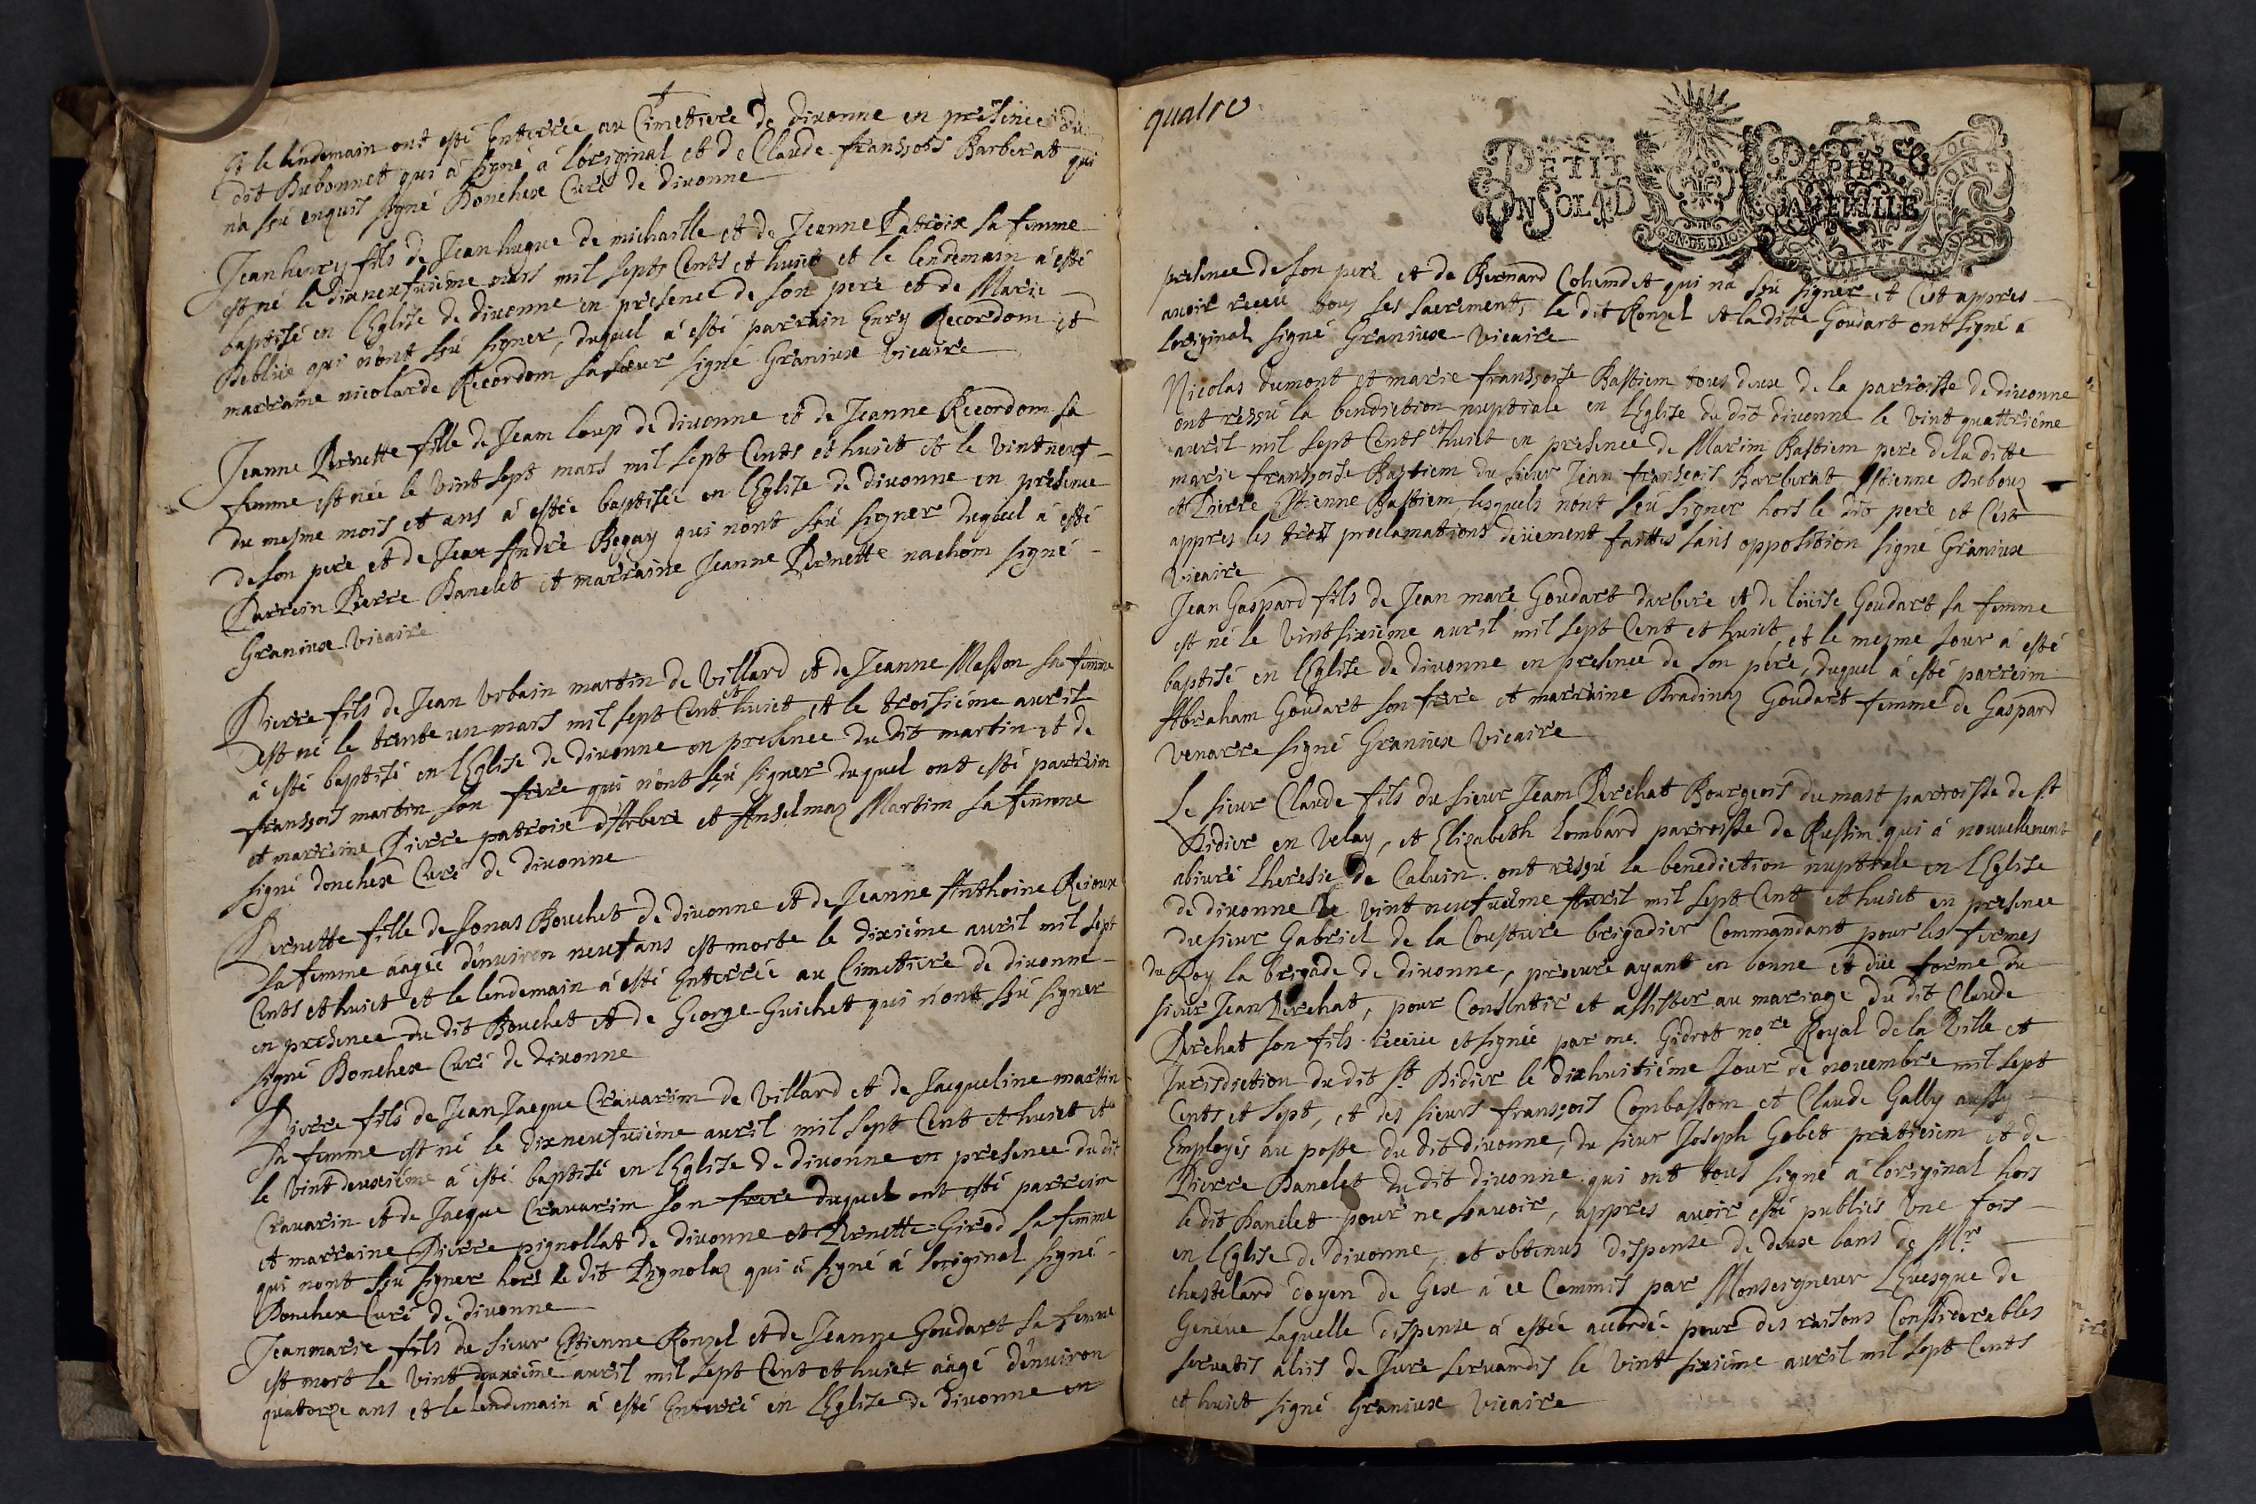 et le lendemain ont esté Enterrée au Cimetiere de diuonne en presence du
dit Bubonnet qui à signé à loriginal et de Claude franssois Barberat qui
na sçu enquis signé Bonchex Curé de diuonne
Jean henry fils de Jean hugue de michaille et de Jeanne Patroix sa femme
est né le dixneufuiéme mars mil septs Cents et huict et le lendemain à esté
baptisé en lEglise de diuonne en presence de son pere et de Marie
qui nont sçu signer, duquel à esté parrain Enry Recordom et
marraine nicolarde Recordom sa sœur signé Graniux vicaire
Jeanne Pernette fille de Jean loup de diuonne et de Jeanne Recordom sa
femme est née le vint sept mars mil sept Cents et huict et le vint neuf
du mesme mois et ans à estée baptisée en lEglise de diuonne en presence
de son pere et de Jean André Begay qui nont sçu signer duquel à esté
Parrein Pierre Banelet et marraine Jeanne Pernette nachom signé
Graniux vicaire
Pierre fils de Jean vrbain martin de villard et de Jeanne Masson sa femme
est né le trente un mars mil sept Cent et huict et le troisiéme auril
à esté baptisé en lEglise de diuonne en presence du dit martin et de
franssois martin son frere qui nont sçu signer duquel ont esté parrein
et marreine Pierre patroix dArbere et Anselmaz Martim sa femme
signé donchex Curé de diuonne
Pernette fille de Jonas Bouchet de diuonne et de Jeanne Anthoine Rejoux
sa femme âagée denuiron neuf ans est morte le dixiéme auril mil sept
Cents et huict et le lendemain à esté Enterrée au Cimetiere de diuonne
en presence du dit Bouchet et de George Guichet qui nont sçu signer
signé Bonchex Curé de diuonne
Pierre fils de Jean Jacque Crauarim de villard et de Jacqueline martin
sa femme est né le dixneufuiéme auril mil sept Cent et huict et
le vint deuxiéme à esté baptisé en lEglise de diuonne en presence du dit
Crauarin et de Jacque Crauarim son frere duquel ont esté parreim
et marraine Pierre pignollat de diuonne et Pernette Girod sa femme
qui nont sçu signer hors le dit Pignolaz qui à signé à loriginal signé
Bonchex Curé de diuonne
Jeanmarie fils du sieur Estienne Ronzel et de Jeanne Goudart sa femme
est mort le vint deuxiéme auril mil sept Cent et huict âagé denuiron
quatorze ans et le lendemain à esté Enterré en lEglise de diuonne en
quatre
PETIT PAPIER
UN SOL 4D LA FEUILLE
GEN.DE DIION
presence de son pere et de Bernard Columdet qui na sçu signer et Cest appres
auoir receu tous les sacrements, le dit Ronzel et la ditte Goudart ont signé à
loriginal signé Graniux vicaire
Nicolas dumont et marie franssoise Bastiem tous deux de la parroisse de diuonne
ont ressu la bendiction nuptiale en lEglise du dit diuonne le vint quattriéme
auril mil sept Cents et huict en presence de Marim Bastiem pere de la ditte
marie franssoise Bastiem du sieur Jean franssois Barberat Estienne Dubouz
et Pierre Estienne Bastiem, lesquels nont sçu signer hors le dit pere et Cest
appres les trois proclamations deüement faittes sans opposition signé Graniux
vicaire
Jean Gaspard fils de Jean marc Goudart darbere et de loüise Goudart sa femme
est né le vintsixiéme auril mil sept Cent et huict et le mesme Jour à esté
baptisé en lEglise de diuonne en presence de son pére, duquel à esté parreim
Abraham Goudart son frere et marraine Pradinaz Goudart femme de Gaspard
venarre signé Graniux vicaire
Le sieur Claude fils du sieur Jean Perchat Bourgeois du mast parroisse de st
Didier en velay, et Elizabeth lombard parroisse de Russim qui à nouuellement
abiuré lheresie de Caluin ont ressu la benediction nuptiale en lEglise
de diuonne le vint neufuiéme Auril mil sept Cent et huict en presence
du sieur Gabriel de la Cousture brigadier Commandant pour les fermes
du Roy la brigade de diuonne, procure ayant en bonne et düe forme du
sieur Jean Perchat, pour Consentir et assister au mariage du dit Claude
Perchat son fils receüe et signée par me. Gidrot nore Royal de la ville et
Jurisdiction du dit st Didier le dixhuitiéme Jour de nouembre mil sept
Cents et sept, et des sieurs franssois Combassom et Claude Gally aussy
Employés au poste du dit diuonne, du sieur Joseph Gobet praticiem et de
Pierre Banelet du dit diuonne qui ont tous signé à loriginal hors
le dit Banelet pour ne sçauoir, appres auoir esté publiés vne fois
en lEglise de diuonne, et obtenus dispense de deux bans de Mr
chastelard doyen de Gex à ce Commis par Monseigneur lEuesque de
Geneue laquelle dispense à estée accordée pour des raisons Considerables
seruatis aliis de Jure seruamdis le vint sixiéme auril mil sept Cents
et huict signé Graniux vicaire